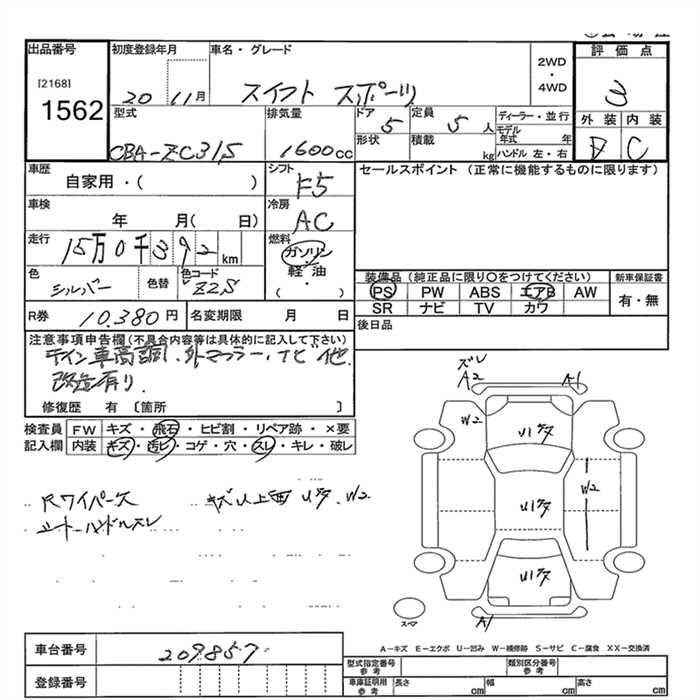 出品番号
[2168]
1562
初度登録年月
20 11月
車名・グレード
スイフト スポーツ
2WD
・
4WD
評価点
3
型式
CBA-ZC31S
排気量
1600cc
ドア
5
形状
定員
5 人
積載
kg
ディーラー・並行
モデル年式 年
ハンドル 左・右
外装 内装
D C
車歴
自家用・( )
シフト
F5
セールスポイント (正常に機能するものに限ります)
車検
年 月( 日)
冷房
AC
走行
15万0千392km
燃料
ガソリン
軽・油
( )
色
シルバー
色替
色コード
Z2S
装備品 (純正品に限り○をつけてください)
PS PW ABS エアB AW
SR ナビ TV カワ
新車保証書
有・無
R券 10.380円
名変期限 月 日
後日品
注意事項申告欄(不具合内容等は具体的に記入して下さい)
テイン車高調、外マフラー、ナビ他
改造有り.
修復歴 有 〔箇所 〕
検査員記入欄
FW キズ・飛石・ヒビ割・リペア跡・×要
内装 キズ・汚ビ・コゲ・穴・スレ・キレ・破レ
Rワイパー欠
キズU上面 Uサタ、W2
シートーハンドルスレ
ズレ
A2
A1
W2
U1サタ
U1サタ
W2
U1サタ
A1
スマ
A－キズ E－エクボ U－凹み W－補修跡 S－サビ C－腐食 XX－交換済
車台番号 209857
登録番号
型式指定番号 参考
類別区分番号 参考
車庫証明用 参考
長さ cm
幅 cm
高さ cm